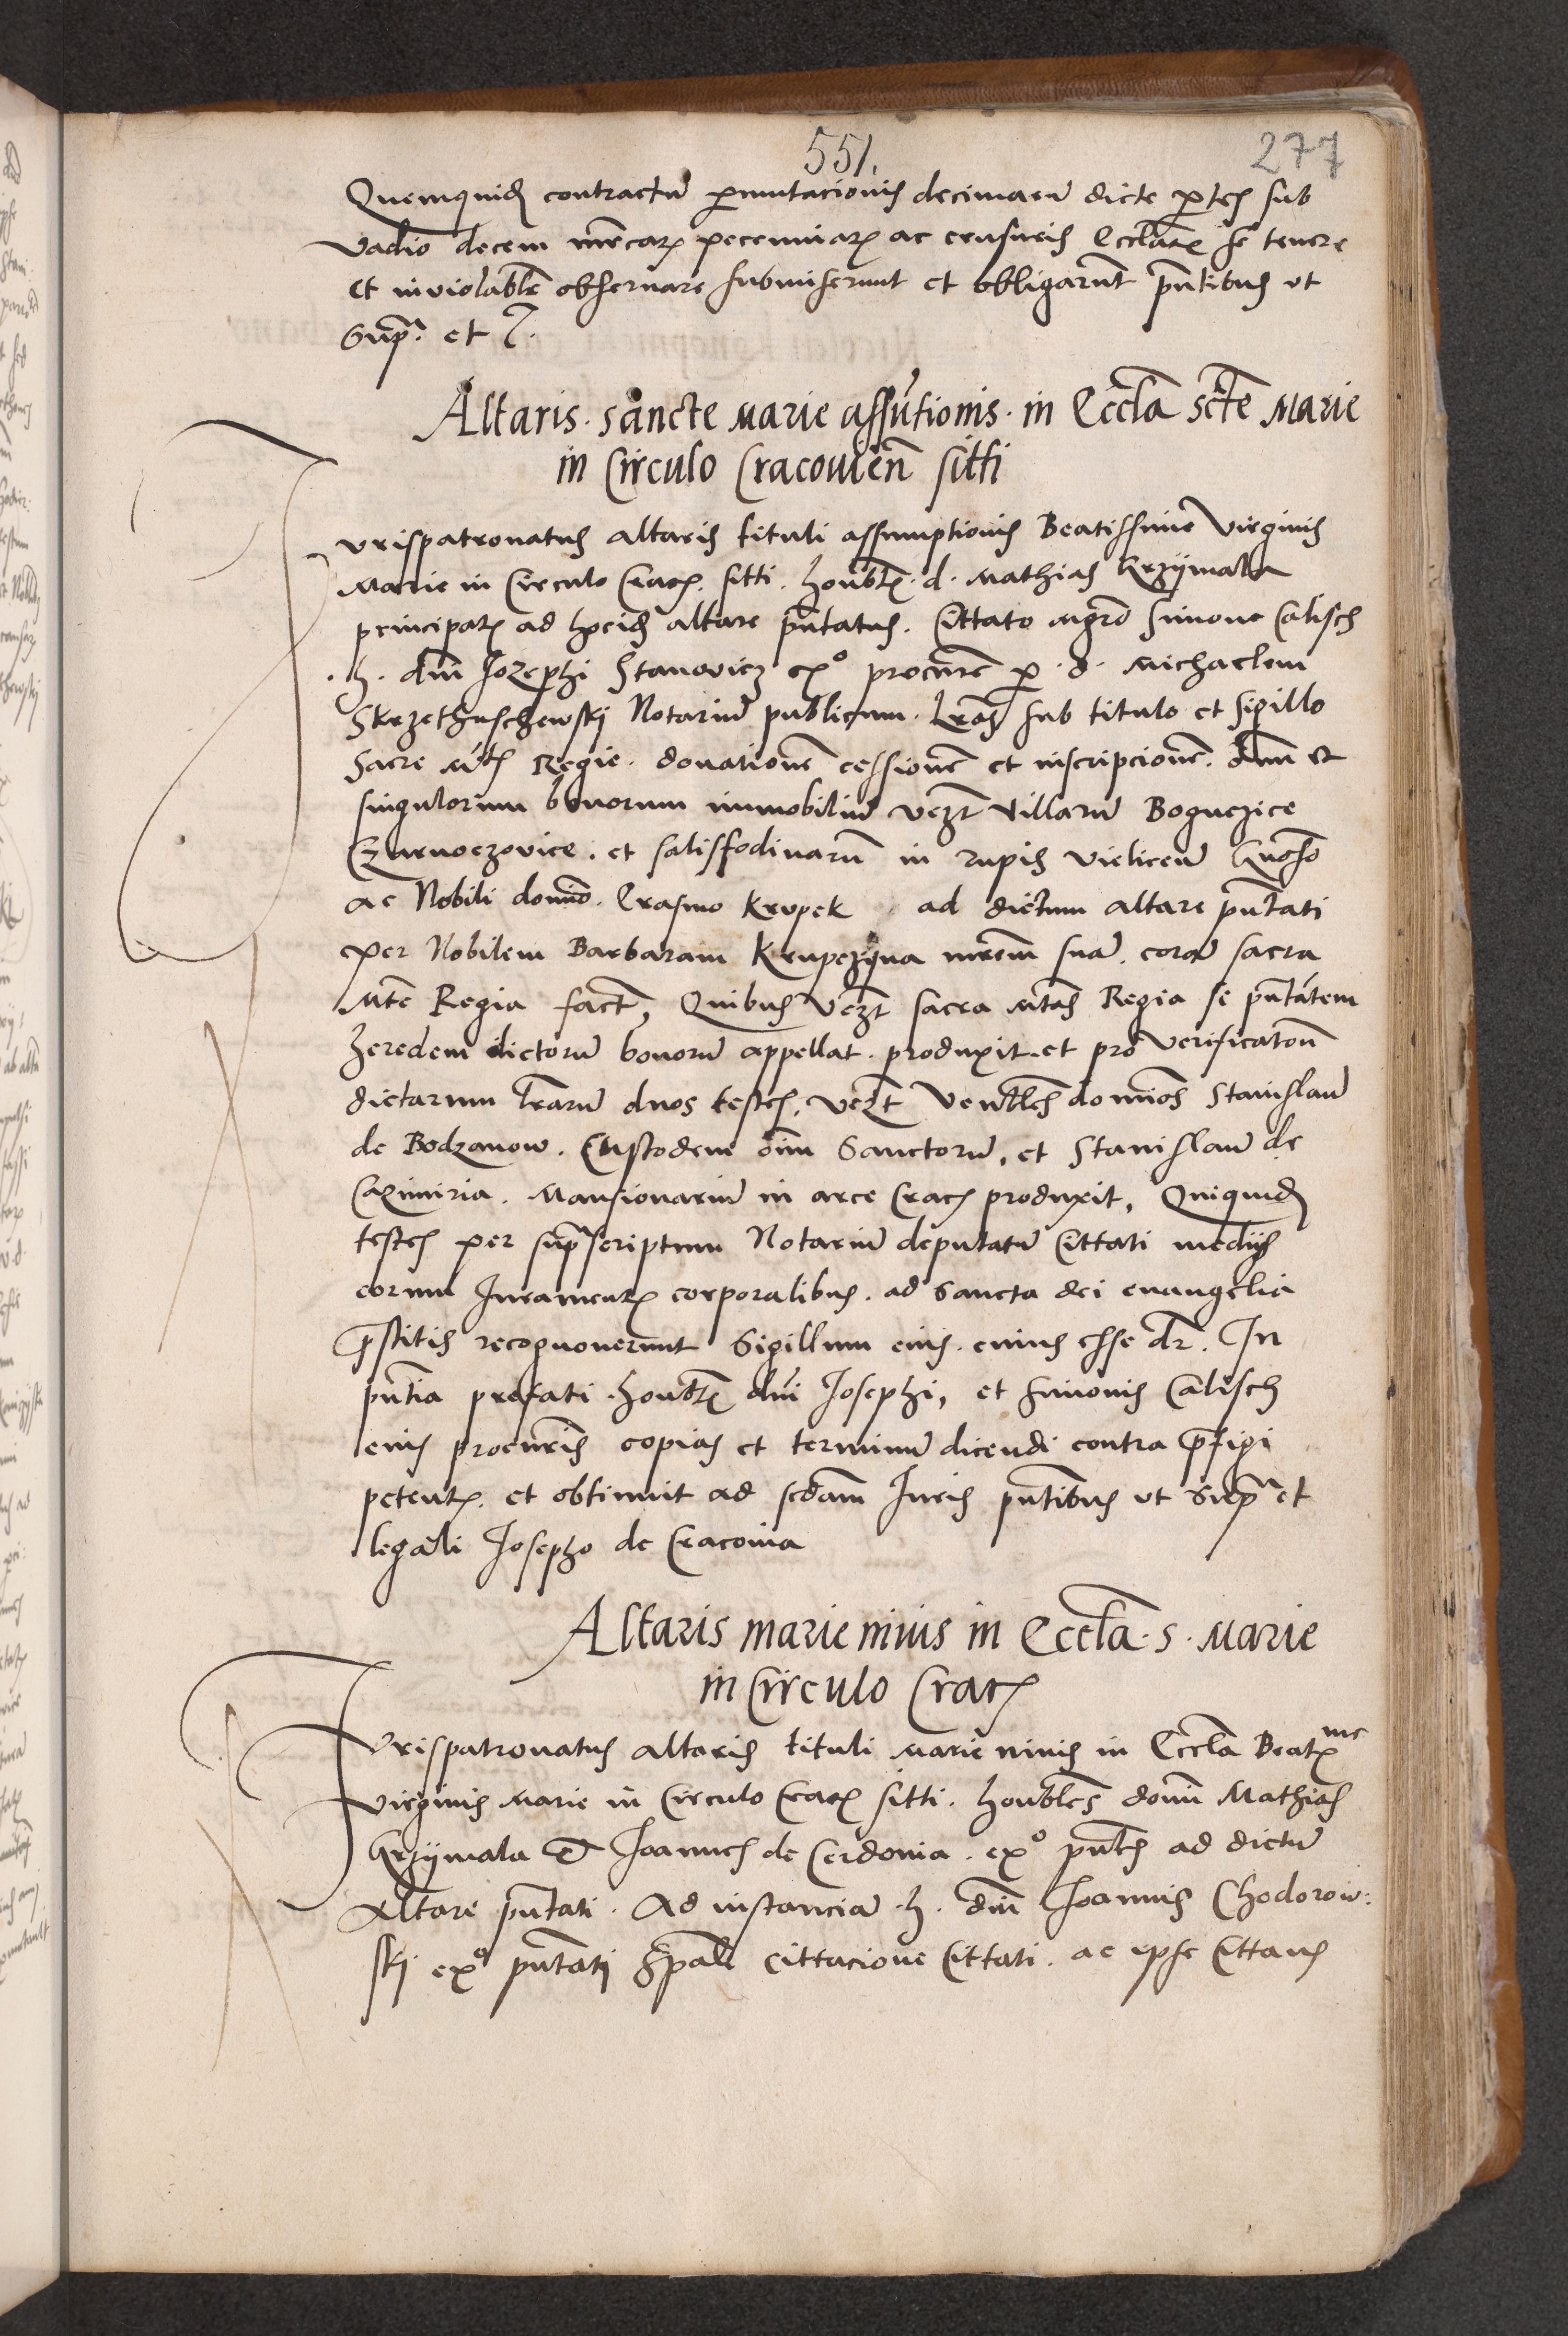 551.
277
Quemquid contractū pmutacionis decimarū dicte ptes sub
vadio decem mrcar pecuniar ac censuris Ecclār se tenere
et inviolablr̄ obseruare submiserunt et obligarūt pn̄tibus vt
Supa. et c.
Altaris. sancte Marie assūtionis. in Eccla scte Marie
in Circulo Cracouien̄ sitti
Iurispatronatus altaris tituli assumptionis Beatissime virginis
Marie in Circulo Crac. sitti. honbls. d. Mathias Grzÿmala
principar ad hocid altare pn̄tatus. Cittato Mgrō Simone Calisch
.h. dni Jozephi Stanovicz expo procure p. d. Michaelem
Skrzethuschewskj Notariū publicum. Lrās sub titulo et sigillo
Sacre Mtis Regie. donationē cessionē et inscripcionē. oīm et
singulorum bonorum immobiliū vezt villarū Boguczice
Czarnoczovice. et salisfodinarū in rupis vielicen̄ Gnoso
ac Nobili domīo. Erasmo Krupek ad dictum altare pn̄tati
per Nobilem Barbaram Krupczÿna mrem̄ suā. corā sacra
Mte Regia fact, Quibus vezt sacra Mtas Regia se pn̄tātem
heredem dictorū bonorū appellat. produxit et pro verificatōn
dictarum lrārū duos testes, vezt Venbles domīos Stanislaū
de Bodzanow. Custodem oīm Sanctorū, et Stanislaū de
Cazimiria. Mansionariū in arce Crac produxit, Quiquid
testes per supascriptum Notariū deputatū Cittati medijs
eorum Iurament corporalibus. ad sancta dei euangelia
pstitis recognouerunt Sigillum eius. cuius esse dr. In
pn̄tia prefati honbls dni Josephi, et Simonis Calisch
eius procuris copias et terminū dicendi contra pfigi
petent. et obtinuit ad scdam Iuris pn̄tibus vt supa et
legali Josepho de Cracouia
Altaris marie niuis in Eccla. s. Marie
in Circulo Crac
Iurispatronatus altaris tituli Marie niuis in Eccla Beat me
virginis Marie in Circulo Crac sitti. honbles domī Mathias
Grzÿmala et Joannes de Cerdonia. expo pn̄ts ad dictū
Altare pn̄tati. Ad instanciā .h. dni Joannis Chodorow:
skj expo pn̄tati Spāli Cittacione Cittati. ac ipse Cittans